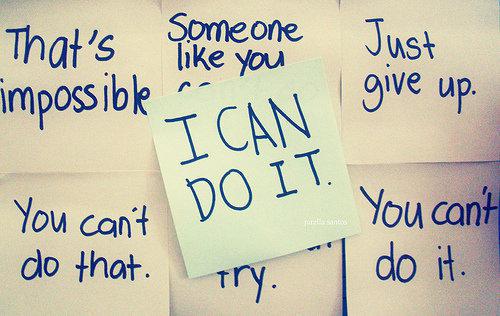 That's
impossible
Someone
like you
Just
give up.
I CAN
DO IT.
You can't
do that.
try.
You can't
do it.